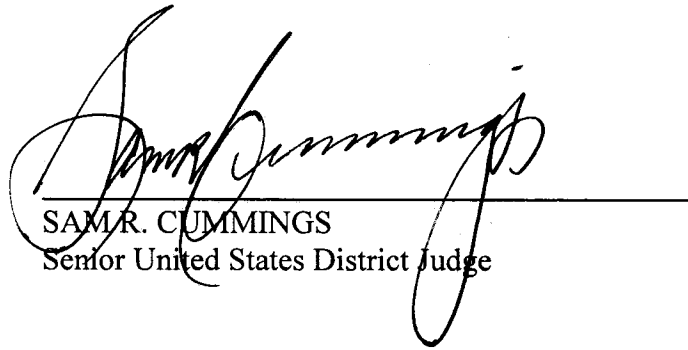 Sam R Cummings
SAM R. CUMMINGS
Senior United States District Judge